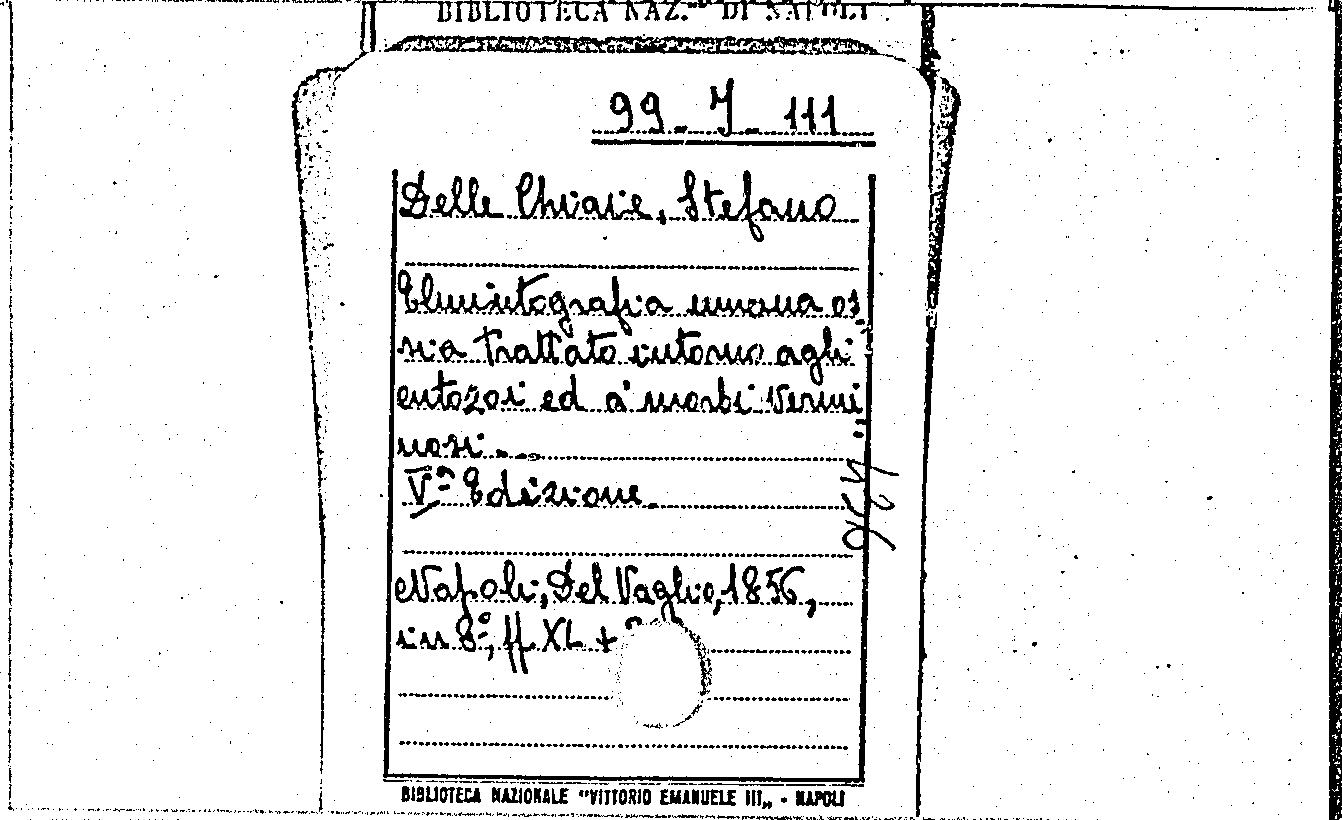 BIBLIOTECA NAZ.le DI NAPOLI.
99. J. 111
Delle Chiaie, Stefano
Elmintografia umana os,,
sia trattato intorno agli
entozoi ed a' morbi vermi,,
nosi...
Vª Edizione.
Napoli, Del Vaglio, 1856,
in 8º, ff. XL +
BIBLIOTECA NAZIONALE "VITTORIO EMANUELE III„ - NAPOLI